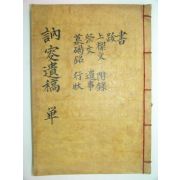 書
跋
上樑文 附錄
祭文 遺事
墓碣銘 行狀
訥窩遺稿 單